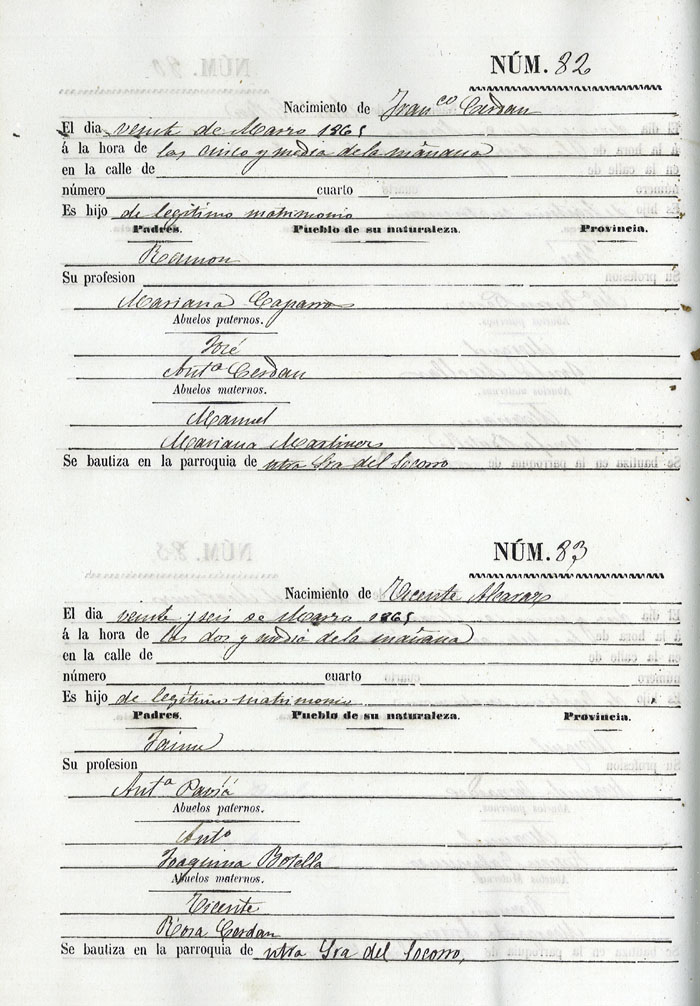 NÚM. 82
Nacimiento de Fran.co Cerdan
El dia veinte de Marzo 1865
á la hora de las cinco y media de la mañana
en la calle de
número cuarto
Es hijo de legitimo matrimonio
Padres. Pueblo de su naturaleza. Provincia.
Ramon
Su profesion
Mariana Caparros
Abuelos paternos.
José
Ant.a Cerdan
Abuelos maternos.
Manuel
Mariana Martinez
Se bautiza en la parroquia de ntra Sra del Socorro
NÚM. 83
Nacimiento de Vicente Alcaraz
El dia veinte y seis de Marzo 1865
á la hora de las dos y media de la mañana
en la calle de
número cuarto
Es hijo de legitimo matrimonio
Padres. Pueblo de su naturaleza. Provincia.
Jaime
Su profesion
Ant.a Pavía
Abuelos paternos.
Ant.o
Joaquina Botella
Abuelos maternos.
Vicente
Rosa Cerdan
Se bautiza en la parroquia de ntra Sra del Socorro.